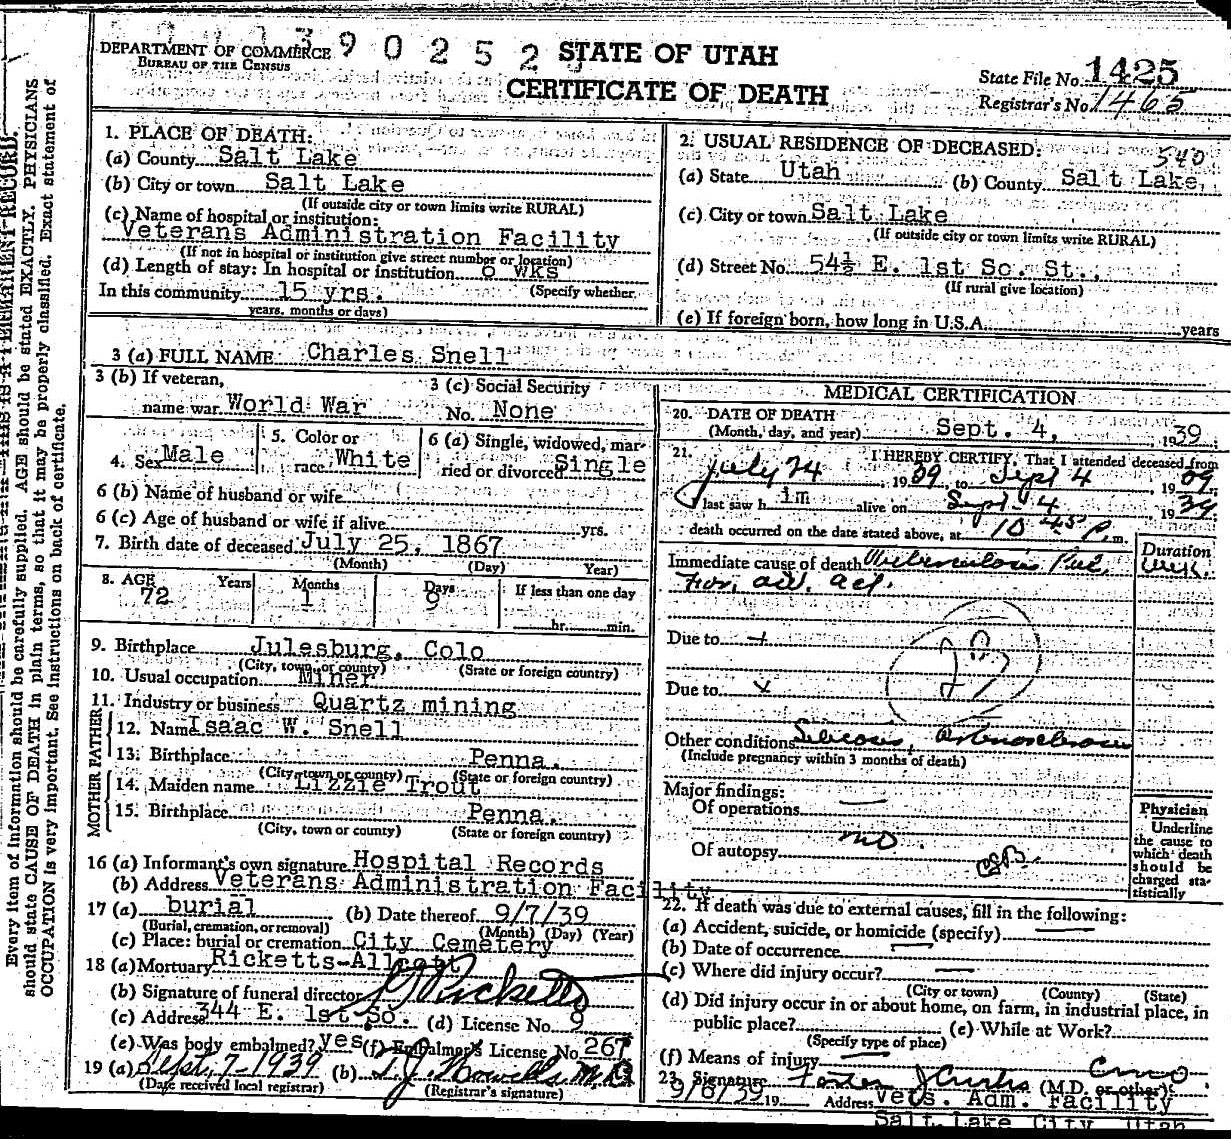 390252
DEPARTMENT OF COMMERCE
BUREAU OF THE CENSUS
STATE OF UTAH
CERTIFICATE OF DEATH
State File No. 1425
Registrar's No. 1465
Every item of information should be carefully supplied. AGE should be stated EXACTLY. PHYSICIANS
should state CAUSE OF DEATH in plain terms, so that it may be properly classified. Exact statement of
OCCUPATION is very important. See instructions on back of certificate.
1. PLACE OF DEATH:
(a) County Salt Lake
(b) City or town Salt Lake
(If outside city or town limits write RURAL)
(c) Name of hospital or institution:
Veterans Administration Facility
(If not in hospital or institution give street number or location)
(d) Length of stay: In hospital or institution 6 wks
In this community 15 yrs. (Specify whether
years, months or days)
2. USUAL RESIDENCE OF DECEASED:
540
(a) State Utah (b) County Salt Lake,
(c) City or town Salt Lake
(If outside city or town limits write RURAL)
(d) Street No. 54½ E. 1st So. St.,
(If rural give location)
(e) If foreign born, how long in U.S.A. years
3 (a) FULL NAME Charles Snell
3 (b) If veteran,
name war World War
3 (c) Social Security
No. None
4. Sex Male
5. Color or
race White
6 (a) Single, widowed, mar-
ried or divorced Single
6 (b) Name of husband or wife
6 (c) Age of husband or wife if alive yrs.
7. Birth date of deceased July 25, 1867
(Month) (Day) Year)
8. AGE Years Months Days If less than one day
72 1 9 hr. min.
9. Birthplace Julesburg, Colo
(City, town, or county) (State or foreign country)
10. Usual occupation Miner
11. Industry or business Quartz mining
FATHER
12. Name Isaac W. Snell
13. Birthplace Penna.
(City, town or county) (State or foreign country)
MOTHER
14. Maiden name Lizzie Trout
15. Birthplace Penna.
(City, town or county) (State or foreign country)
16 (a) Informant's own signature Hospital Records
(b) Address Veterans Administration Facility
17 (a) burial (b) Date thereof 9/7/39
(Burial, cremation, or removal) (Month) (Day) (Year)
(c) Place: burial or cremation City Cemetery
18 (a) Mortuary Ricketts-Allcott
(b) Signature of funeral director Ricketts
(c) Address 344 E. 1st So. (d) License No. 9
(e) Was body embalmed? yes (f) Embalmer's License No. 267
19 (a) Sept. 7-1939 (b) M.D.
(Date received local registrar) (Registrar's signature)
MEDICAL CERTIFICATION
20. DATE OF DEATH
(Month, day, and year) Sept. 4, 1939
21. I HEREBY CERTIFY, That I attended deceased from
July 24, 1939, to Sept 4, 1939
I last saw him alive on Sept. 4 1939
death occurred on the date stated above, at 10 45 P. m.
Duration
Immediate cause of death Tuberculosis Pul.
Far. adv. act.
Due to
Due to
Other conditions Silicosis, Arteriosclerosis
(Include pregnancy within 3 months of death)
Major findings:
Of operations
Of autopsy no
Physician
Underline
the cause to
which death
should be
charged sta-
tistically
22. If death was due to external causes, fill in the following:
(a) Accident, suicide, or homicide (specify)
(b) Date of occurrence
(c) Where did injury occur?
(City or town) (County) (State)
(d) Did injury occur in or about home, on farm, in industrial place, in
public place? (e) While at Work?
(Specify type of place)
(f) Means of injury
23. Signature Foster J Curtis (M.D. or other)
9/6/39 19 Address Vets. Adm. Facility
Salt Lake City, Utah